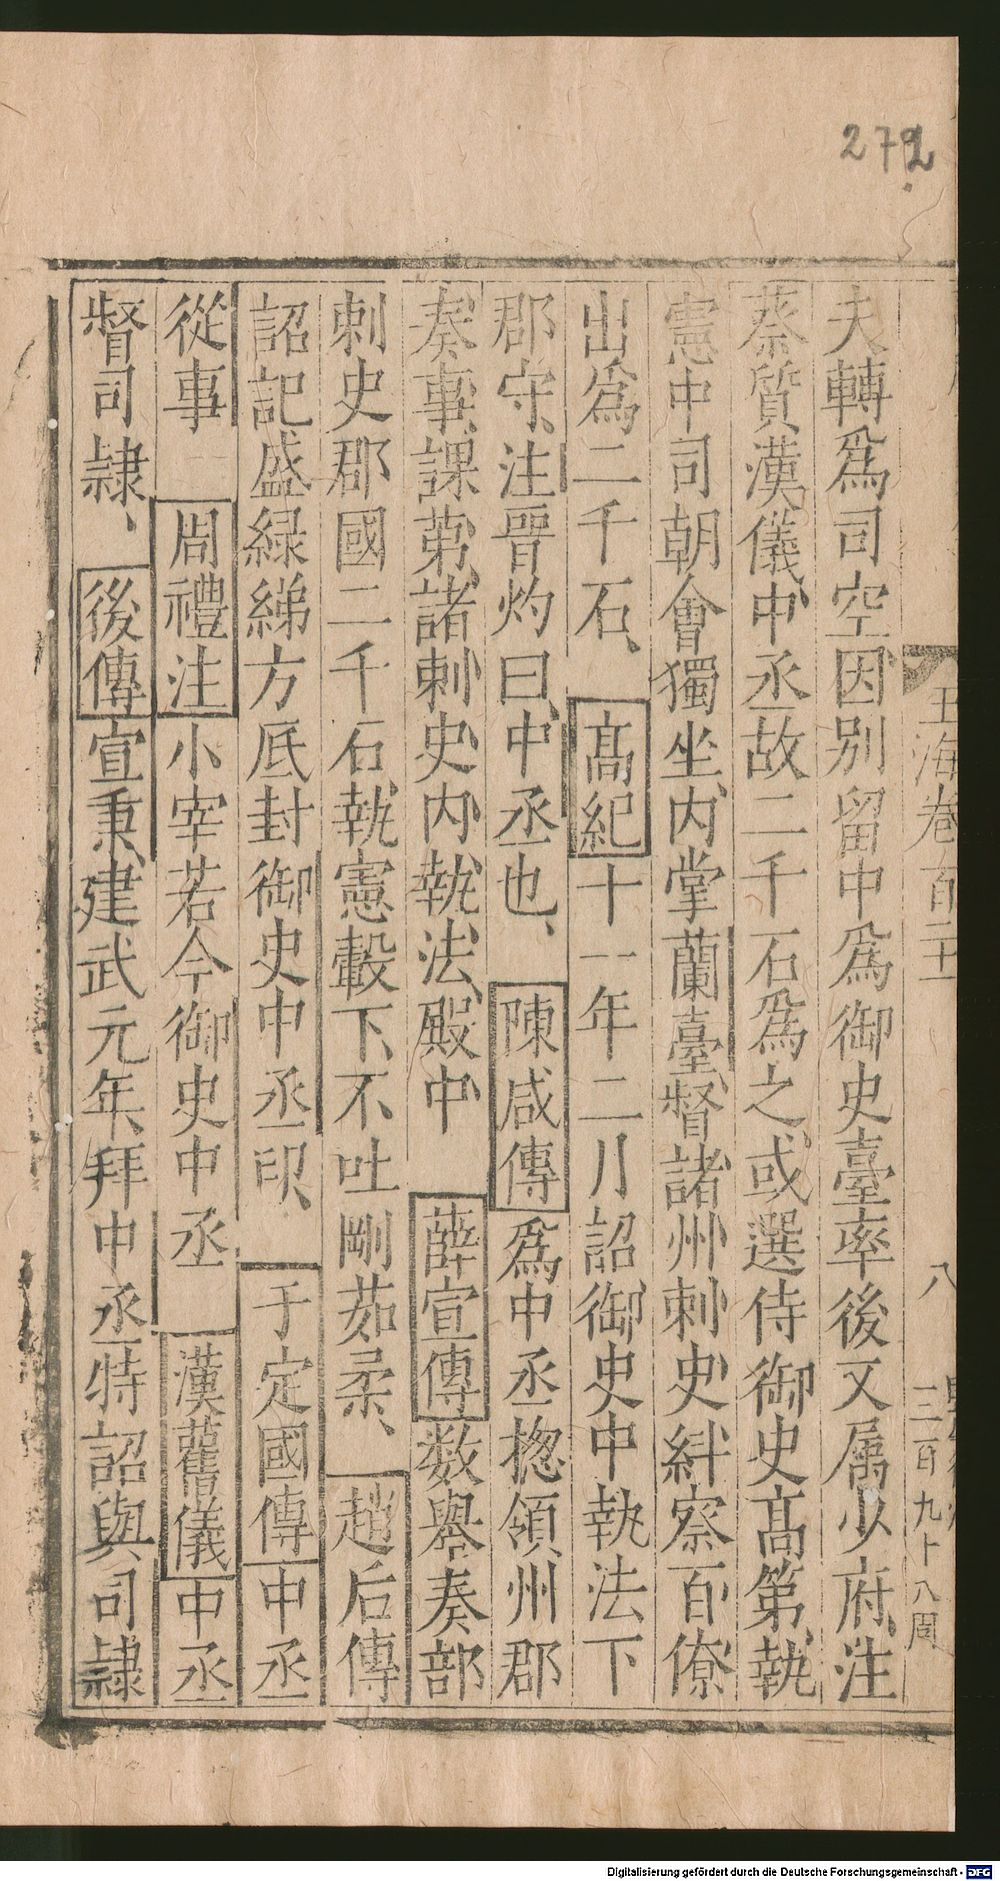 272
玉海卷百二十
八
三百九十八周
夫轉爲司空、因别留中爲御史臺率後又属少府、注
蔡質漢儀、中丞故二千石爲之、或選侍御史高第、執
憲中司朝會獨坐、内掌蘭臺、督諸州刺史、糾察百僚
出爲二千石、高紀十一年二月詔御史中執法下
郡守、注晋灼曰、中丞也、陳咸傳爲中丞捴領州郡
奏事、課苐諸刺史、内執法殿中、薛宣傳数舉奏部
刺史郡國二千石、執憲轂下、不吐剛茹柔、趙后傳
詔記盛緑綈方底封御史中丞印、于定國傳中丞
從事周禮注小宰若今御史中丞漢舊儀中丞
督司隷、後傳宣秉、建武元年、拜中丞特詔與司隷
Digitalisierung gefördert durch die Deutsche Forschungsgemeinschaft - DFG